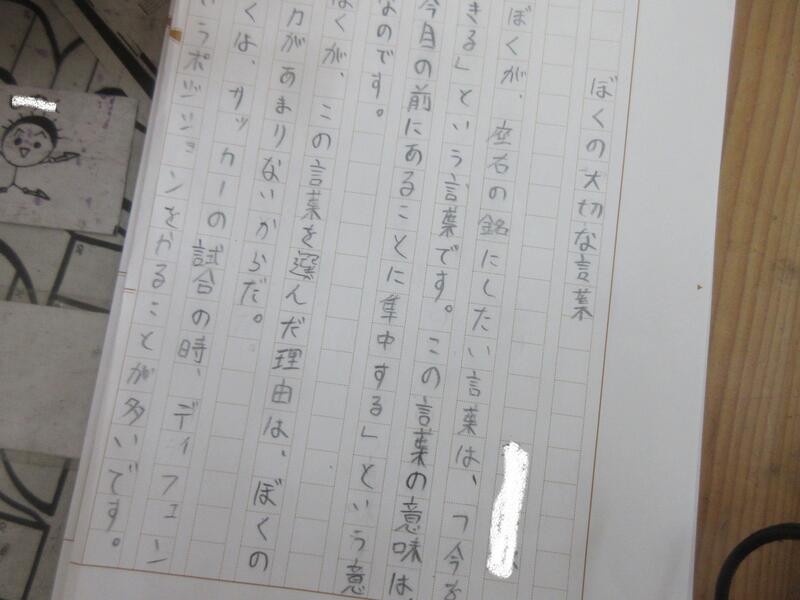 ぼくの大切な言葉
ぼくが、座右の銘にしたい言葉は、「今を
きる」という言葉です。この言葉の意味は、
今目の前にあることに集中する」という意
なのです。
ぼくが、この言葉を選んだ理由は、ぼくの
力があまりないからだ。
くは、サッカーの試合の時、ディフェン
いうポジションをやることが多いです。